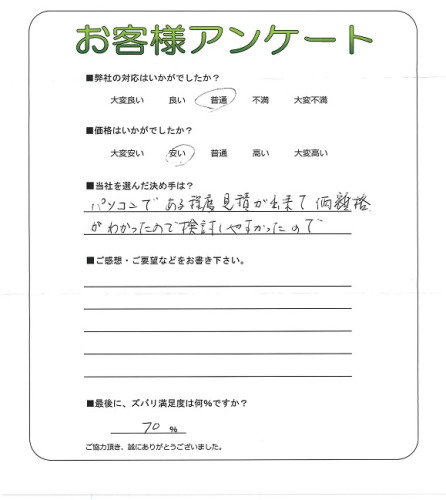 お客様アンケート
■弊社の対応はいかがでしたか？
大変良い 良い 普通 不満 大変不満
■価格はいかがでしたか？
大変安い 安い 普通 高い 大変高い
■当社を選んだ決め手は？
パソコンである程度見積が出来て価額格
がわかったので検討しやすかったので
■ご感想・ご要望などをお書き下さい。
■最後に、ズバリ満足度は何％ですか？
70 ％
ご協力頂き、誠にありがとうございました。